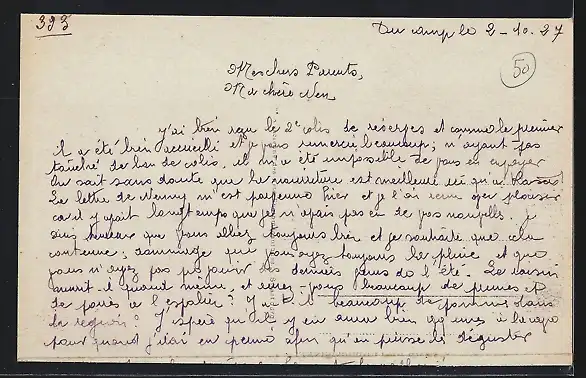 393
Du camp le 2-10.27
50
Mes chers Parents,
Ma chère Nen,
j'ai bien reçu le 2e colis de réserves et comme le premier
il a été bien accueilli et je vous remercie beaucoup; n'ayant pas
touché de bon de colis, il m'a été impossible de vous en envoyer
On sait sans doute que la nourriture est meilleure ici qu'à
La lettre de Nenny m'est parvenue hier et je l'ai avec plaisir
car il y avait longtemps que je n'avais pas eu de vos nouvelles. Je
suis heureux que vous alliez toujours bien et je souhaite que cela
continue; dommage que vous ayez toujours la pluie et que
vous n'ayez pas pu jouir des derniers jours de l'été. Le raisin
mûrit il quand même, et avez-vous beaucoup de prunes et
de poires à l'espalier? Y a t-il beaucoup de pommes dans
J'espère qu'il y en aura bien
pour quand j'irai en permé afin qu'on puisse les déguster